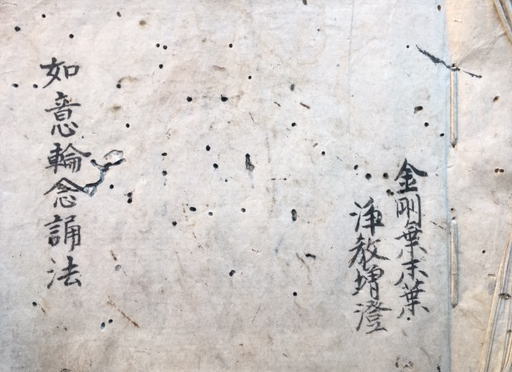 金剛乗末葉
浄教増澄
如意輪念誦法